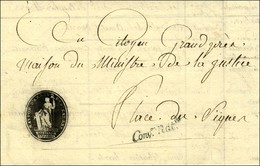 Au Citoyen Grandprés
maison du Ministre De la justice
Place des Piques
Conv. Nat.